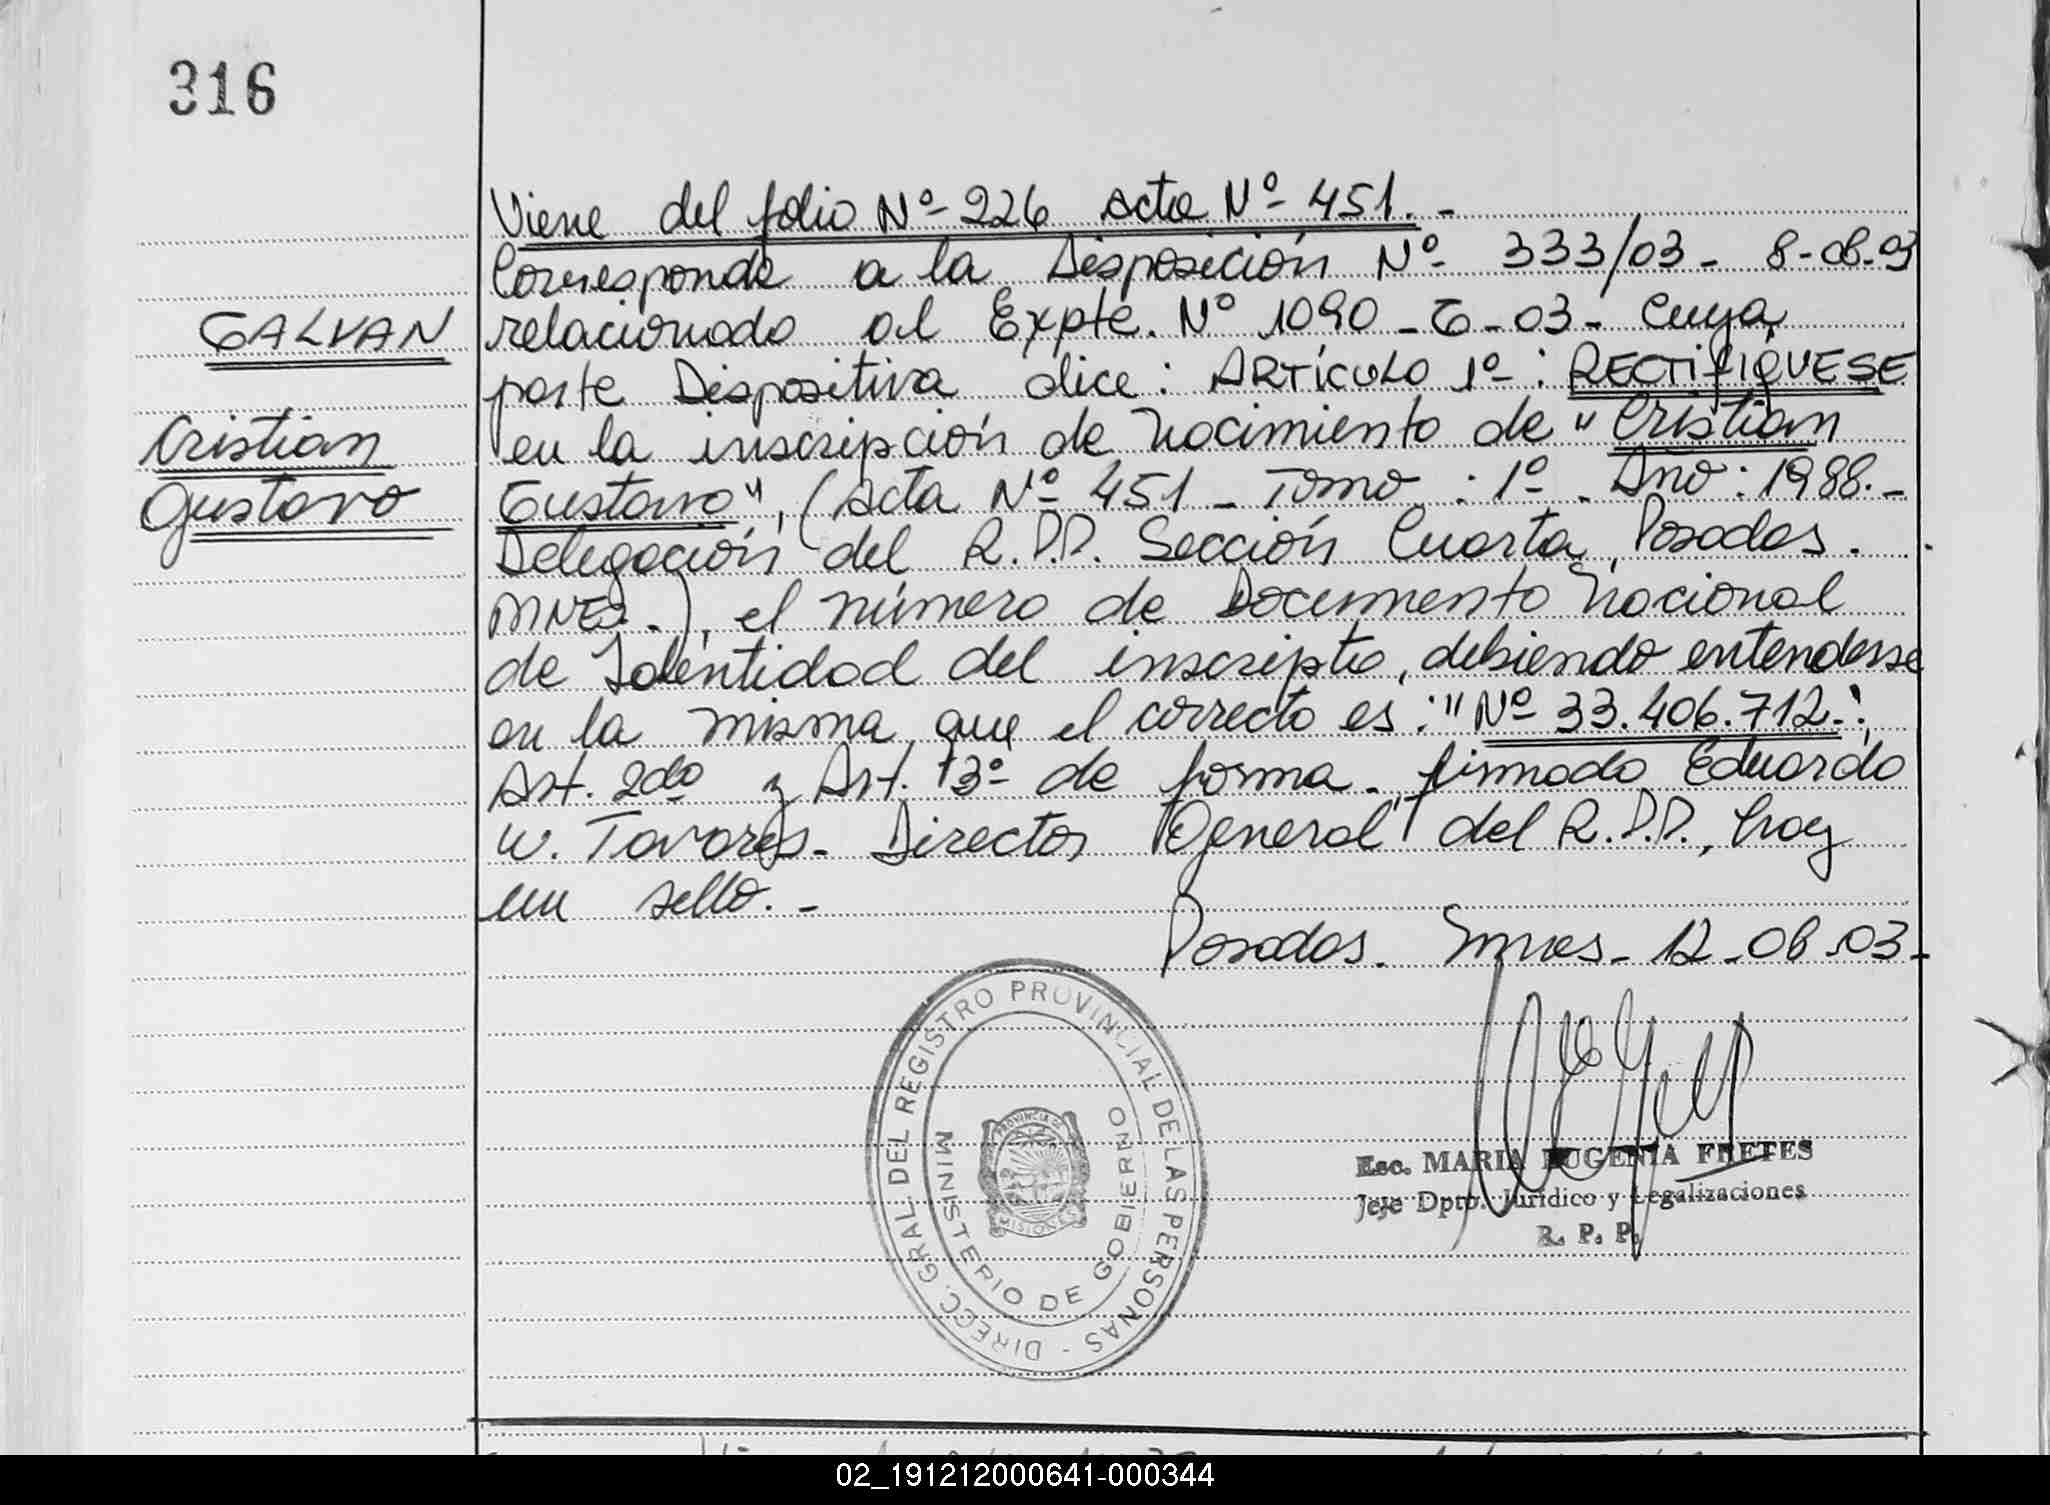 316
Viene del folio Nº 226 acta Nº 451.-
Corresponde a la Disposición Nº 333/03- 8-08-03
relacionado al Expte. Nº 1090-G-03- Cuya
parte Dispositiva dice: ARTÍCULO 1º: RECTIFIQUESE
en la inscripción de nacimiento de "Cristian
Gustavo", (acta Nº 451- Tomo: 1º. Año: 1988.-
Delegación del R.P.P. Sección Cuarta, Posadas.
MNES.), el número de Documento Nacional
de Identidad del inscripto, debiendo entenderse
en la misma que el correcto es: "Nº 33.406.712-".
Art. 2do y Art. 3º de forma. firmado Eduardo
W. Tavares- Director General del R.P.P., hay
un sello.-
Posadas. Mnes- 12-08-03-
GALVAN
Cristian
Gustavo
DIRECC. GRAL. DEL REGISTRO PROVINCIAL DE LAS PERSONAS -
MINISTERIO DE GOBIERNO
PROVINCIA DE
MISIONES
Esc. MARIA EUGENIA FRETES
Jefe Dpto. Jurídico y Legalizaciones
R. P. P.
02_191212000641-000344